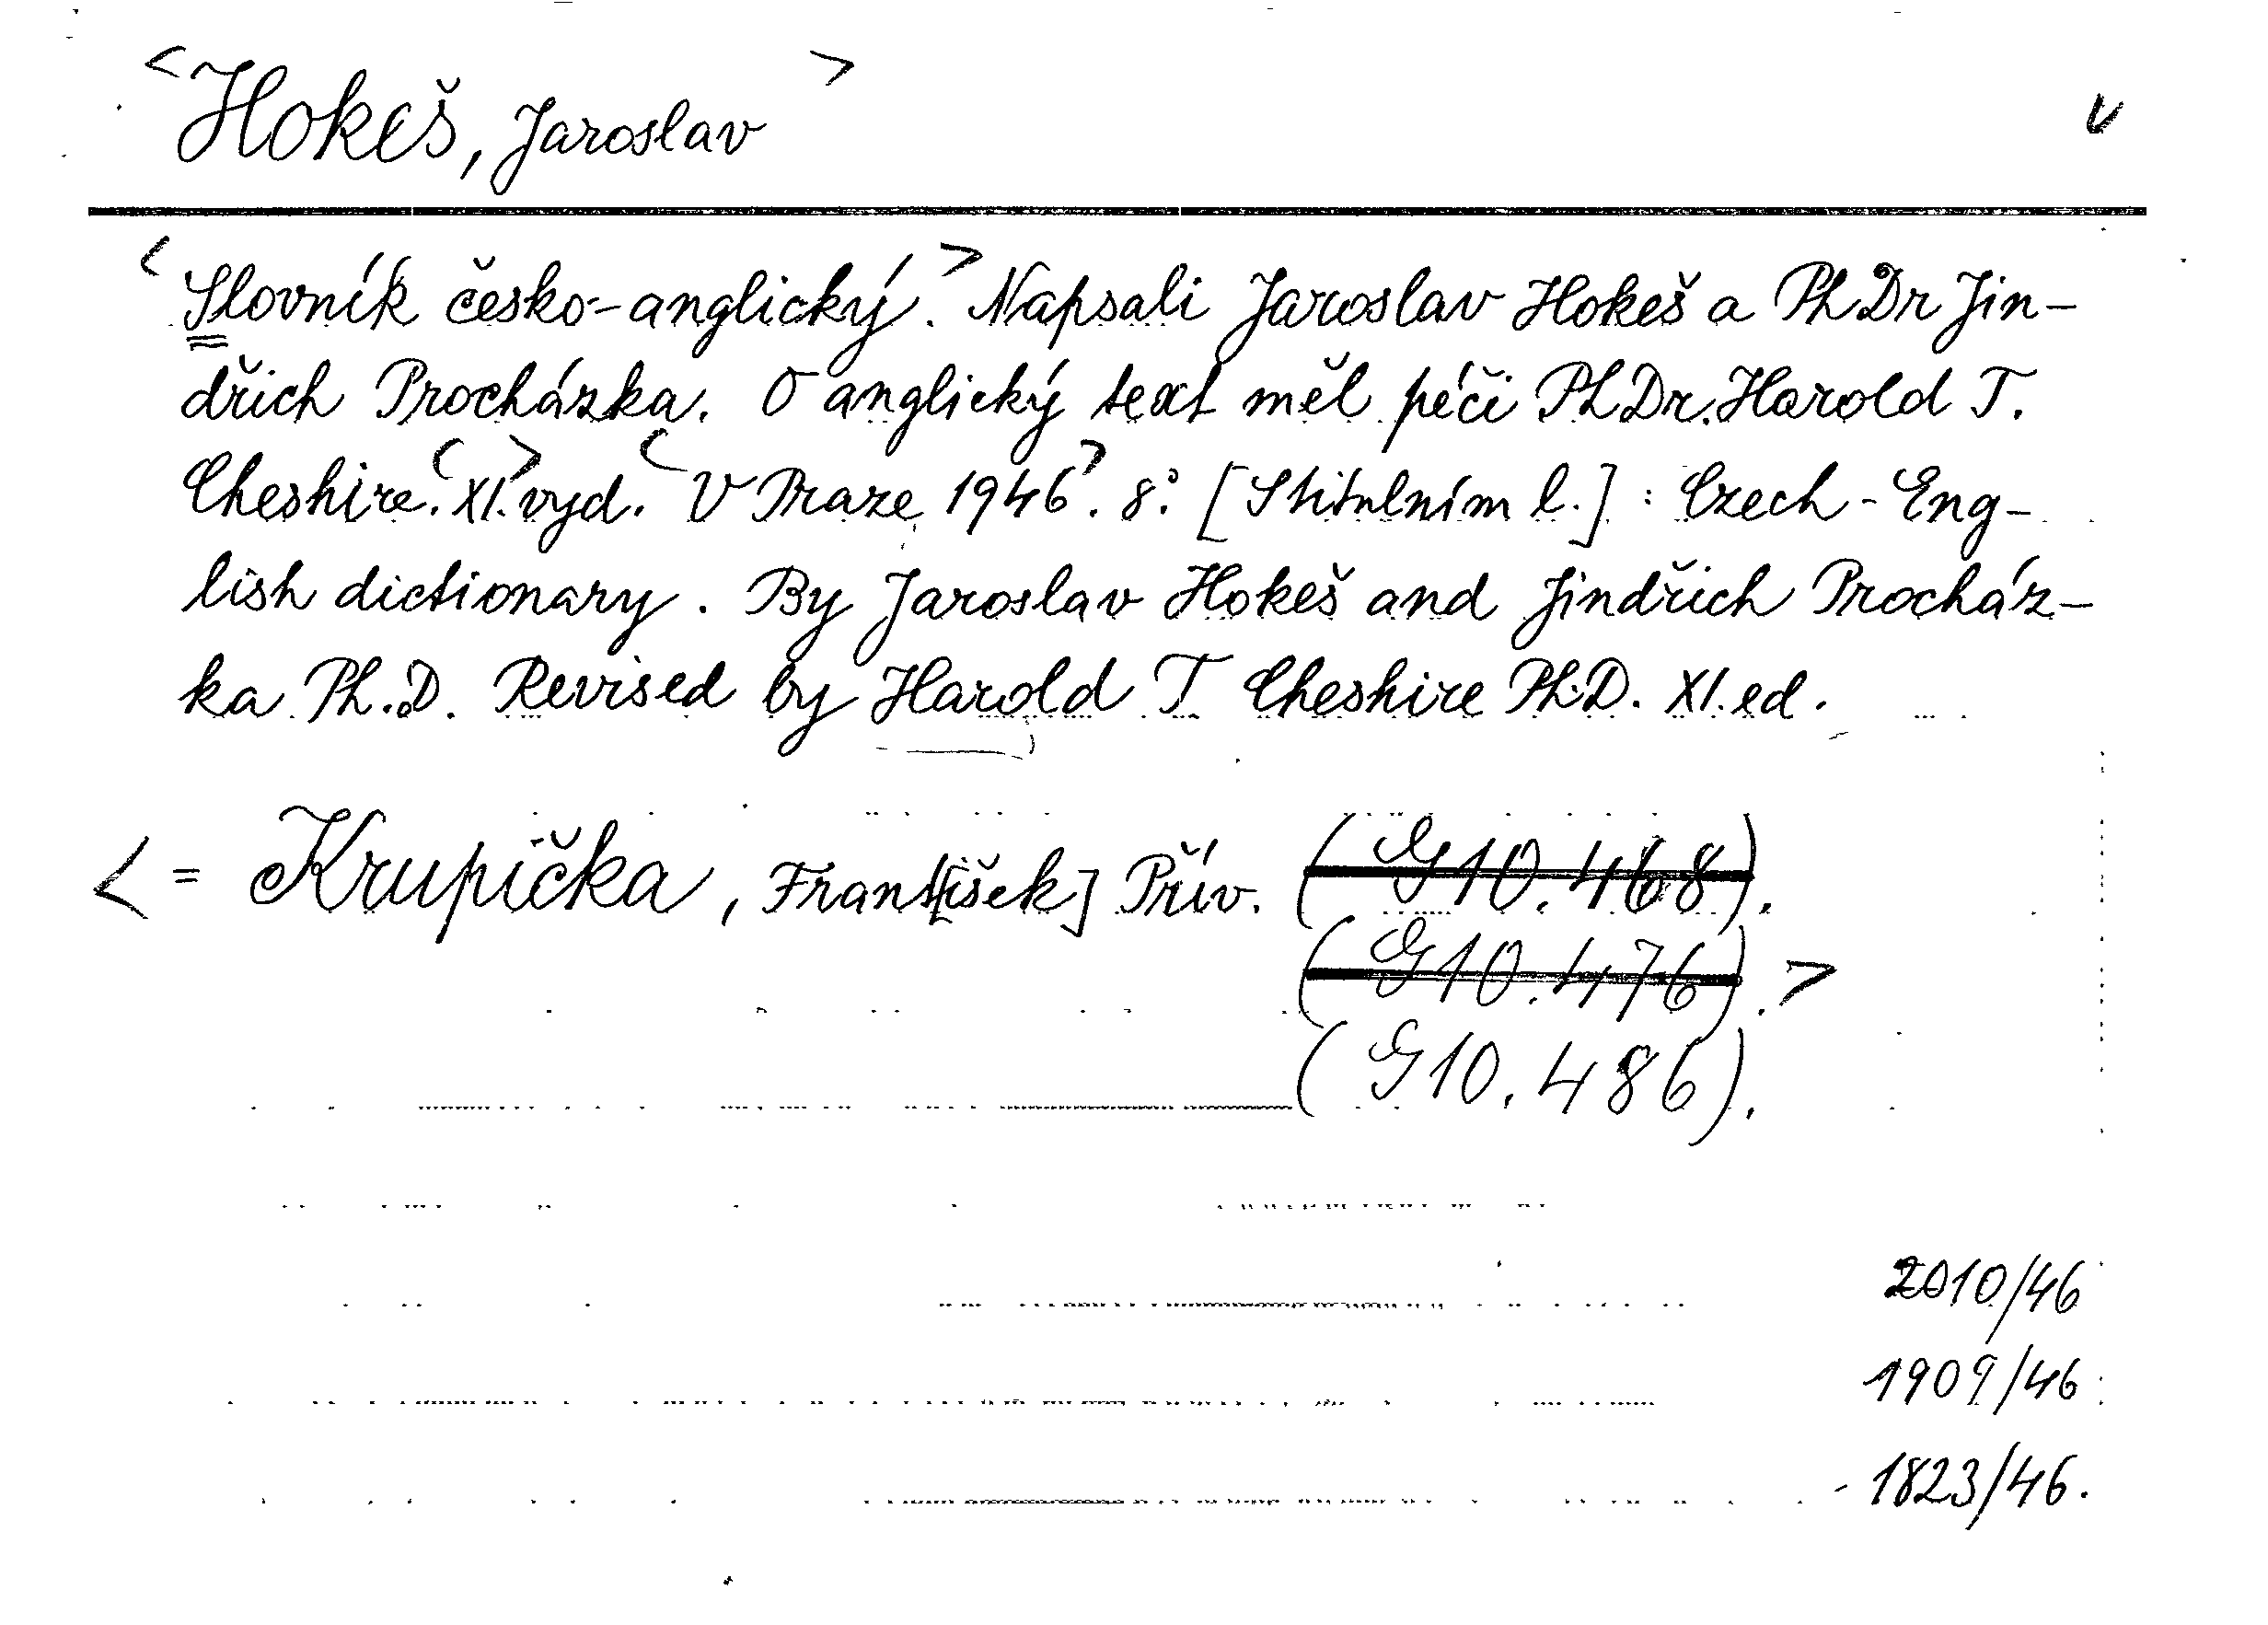 <Hokeš, Jaroslav>
v
<Slovník česko-anglický.> Napsali Jaroslav Hokeš a PhDr Jin-
dřich Procházka. O anglický text měl péči PhDr. Harold T.
Cheshire. <XI.> vyd. <V Praze 1946>. 8°. [S titulním l.] : Czech - Eng-
lish dictionary. By Jaroslav Hokeš and Jindřich Procház-
ka Ph.D. Revised by Harold T Cheshire Ph.D. XI. ed.
< = Krupička, Frant[išek] Přív. (G 10.468).
(G 10.476). >
(G 10.486).
2010/46
1909/46
1823/46.